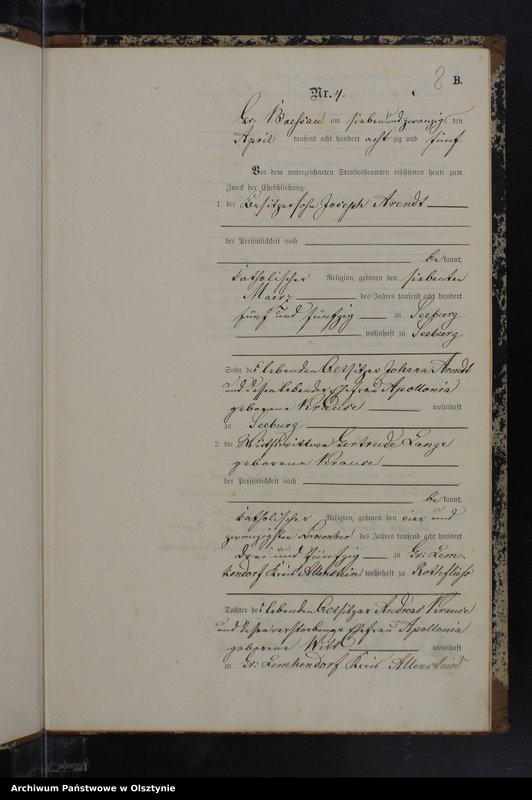 8 B.
Nr. 4.
Gr. Boessau am siebenundzwanzig ten
April tausend acht hundert achtzig und fünf
Vor dem unterzeichneten Standesbeamten erschienen heute zum
Zweck der Eheschließung:
1. der Besitzersohn Joseph Arendt
der Persönlichkeit nach
bekannt,
katholischer Religion, geboren den siebenten
Maerz des Jahres tausend acht hundert
fünf und fünfzig zu Seeburg
, wohnhaft zu Seeburg
Sohn des lebenden Besitzer Johann Arendt
und dessen lebender Ehefrau Apollonia
geborene Krause wohnhaft
zu Seeburg
2. die Wirthswittwe Gertrude Lange
geborene Krause
der Persönlichkeit nach
bekannt,
katholischer Religion, geboren den vier und
zwanzigsten November des Jahres tausend acht hundert
drei und fünfzig zu Gr: Lem-
kendorf Kreis Allenstein wohnhaft zu Rothfließ
Tochter des lebenden Besitzer Andreas Krause
und dessen verstorbene Ehefrau Apollonia
geborene Witt wohnhaft
zu Gr: Lemkendorf Kreis Allenstein
Archiwum Państwowe w Olsztynie